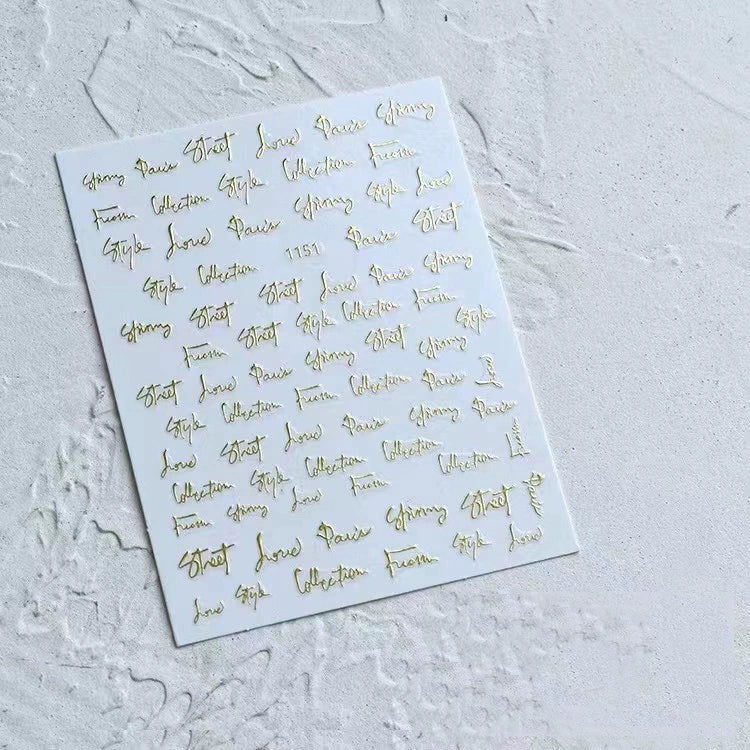 Spring Paris Street Love Paris Spring
From Collection Style Collection From
Style Love Paris Spring Style Love
Style Collection 1151 Paris Street
Spring Street Street Love Paris Spring
From Street Style Collection From
Street Love Paris Spring Street Spring Style
Style Collection From Collection Paris Love
Love Street Love Paris Spring Paris
Collection Style Collection Collection Collection From
From Spring Love From
Street Love Paris Spring Street Paris
Love Style Collection From Style Love